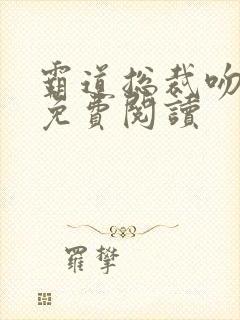 霸道总裁吻
免費閱讀
羅攀